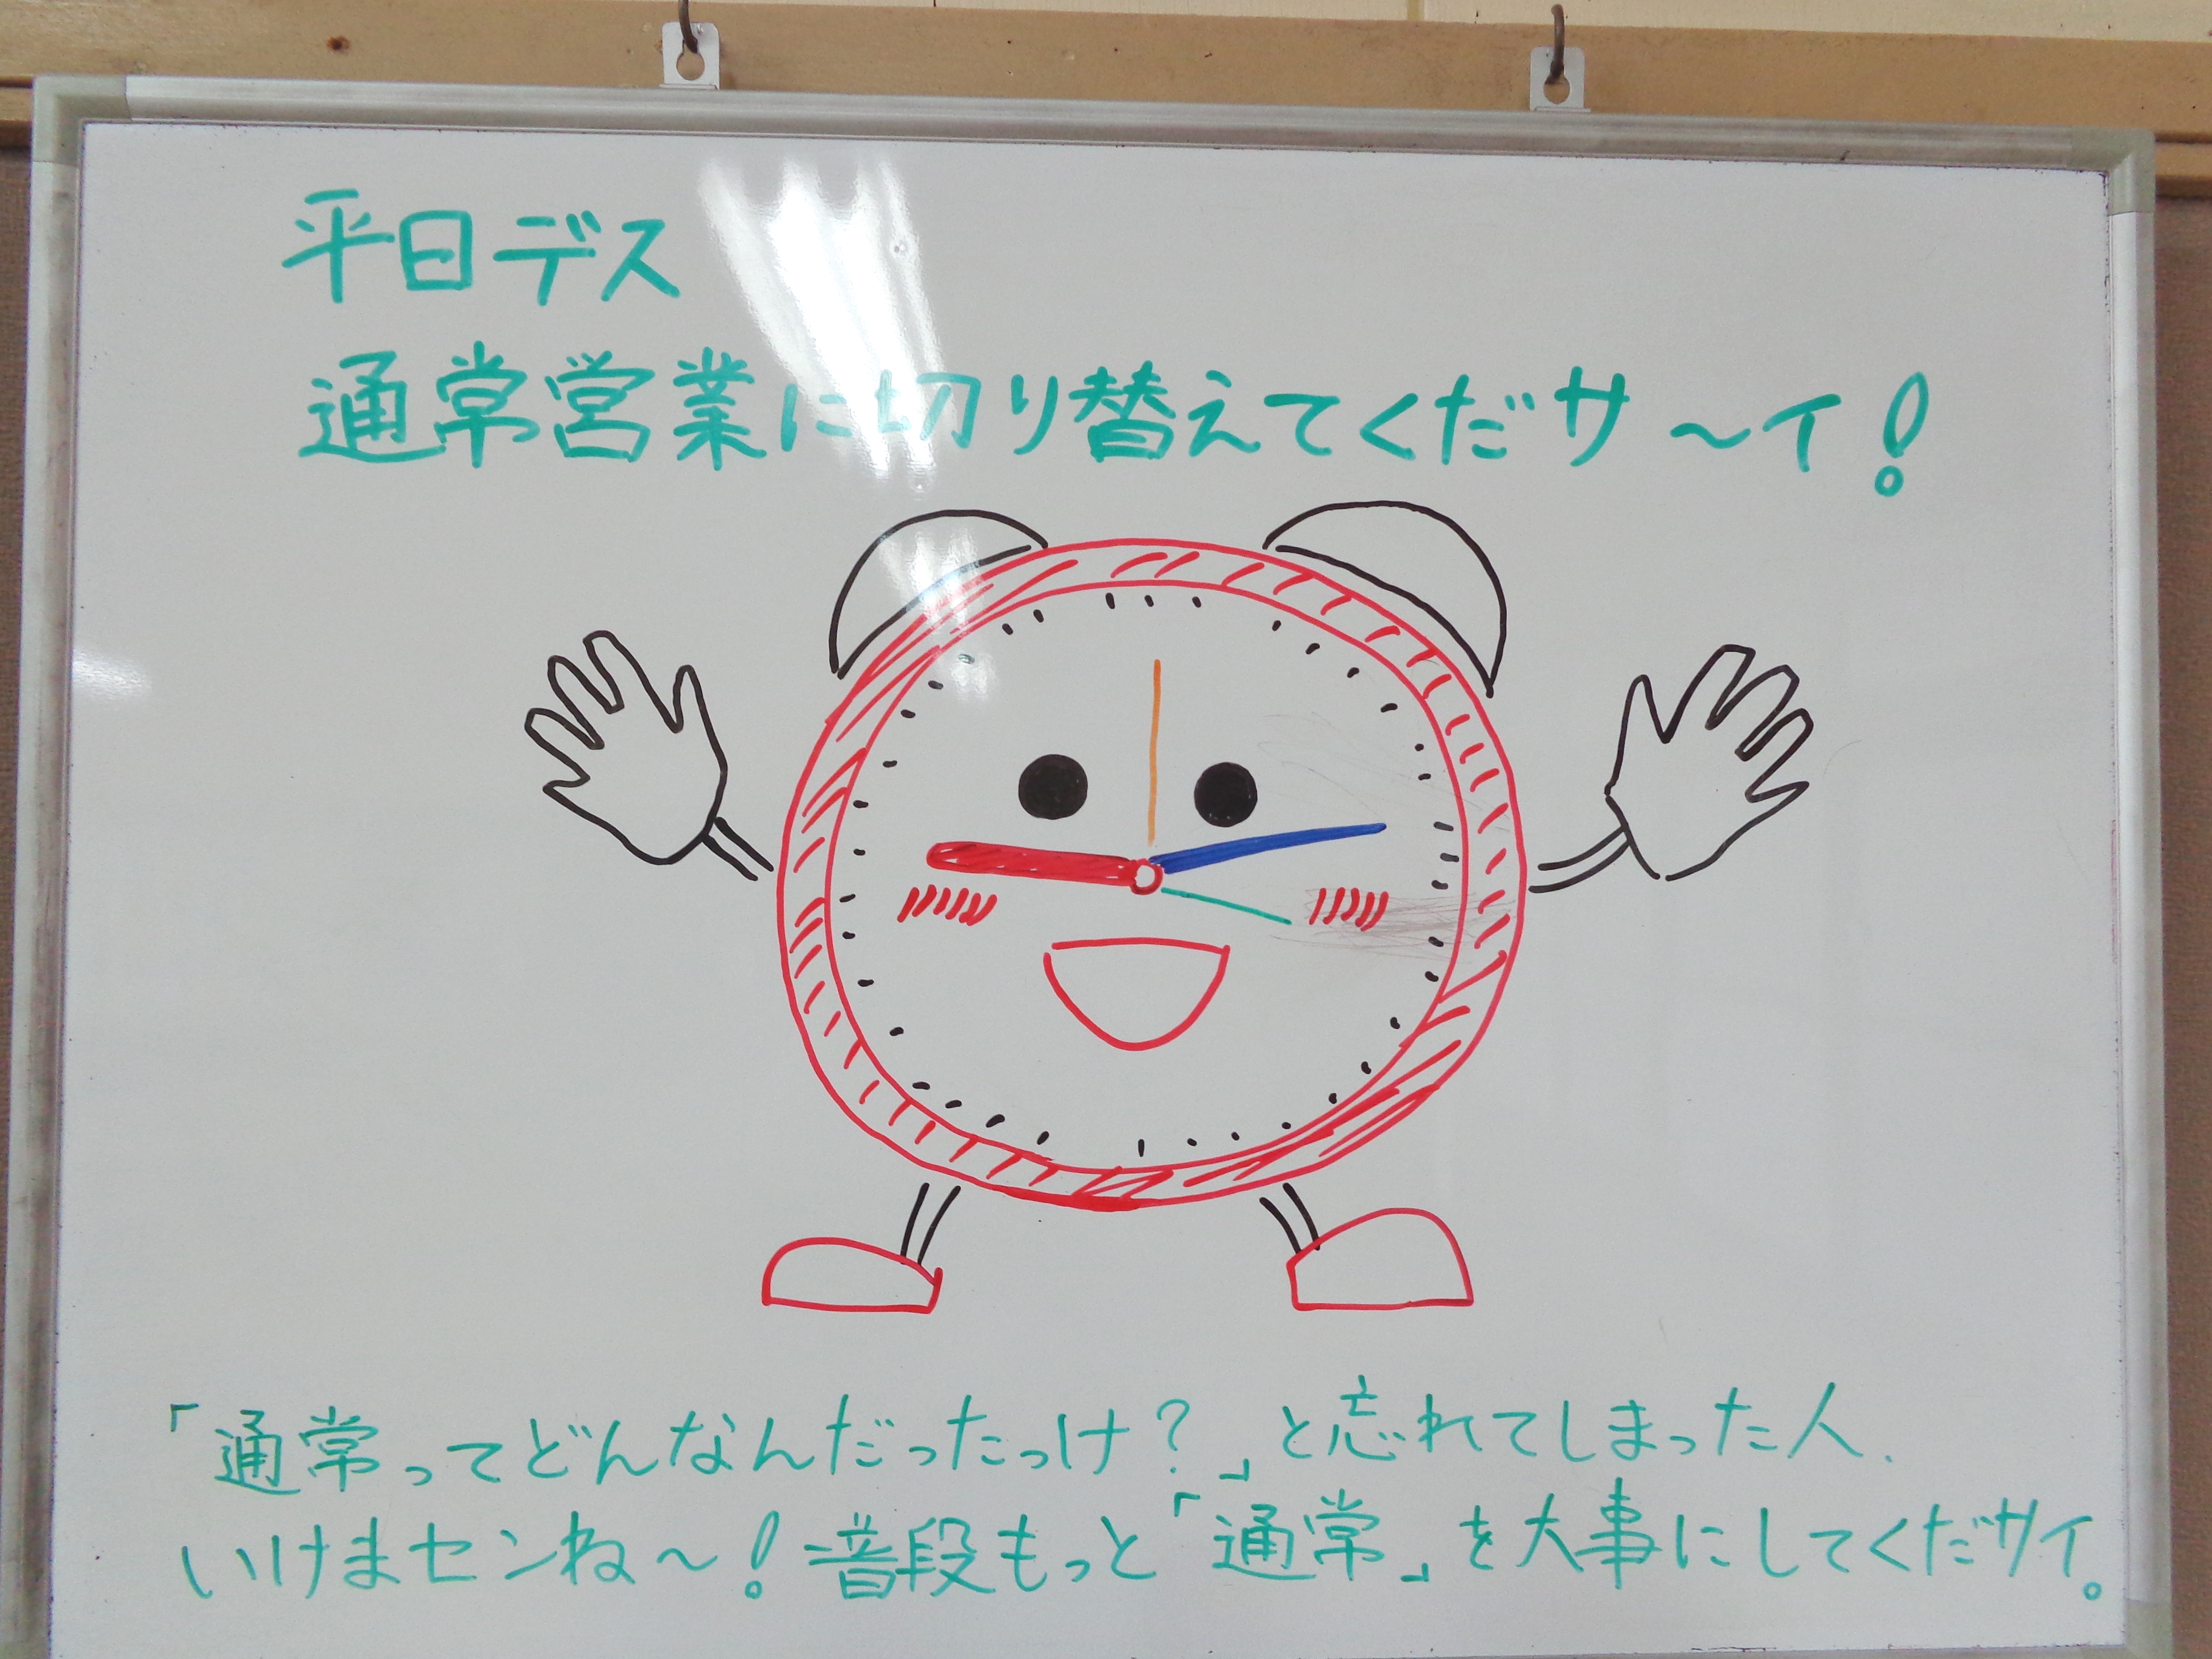 平日デス
通常営業に切り替えてくだサ〜イ!
「通常ってどんなんだったっけ?」と忘れてしまった人、
いけまセンね〜!普段もっと「通常」を大事にしてくだサイ。